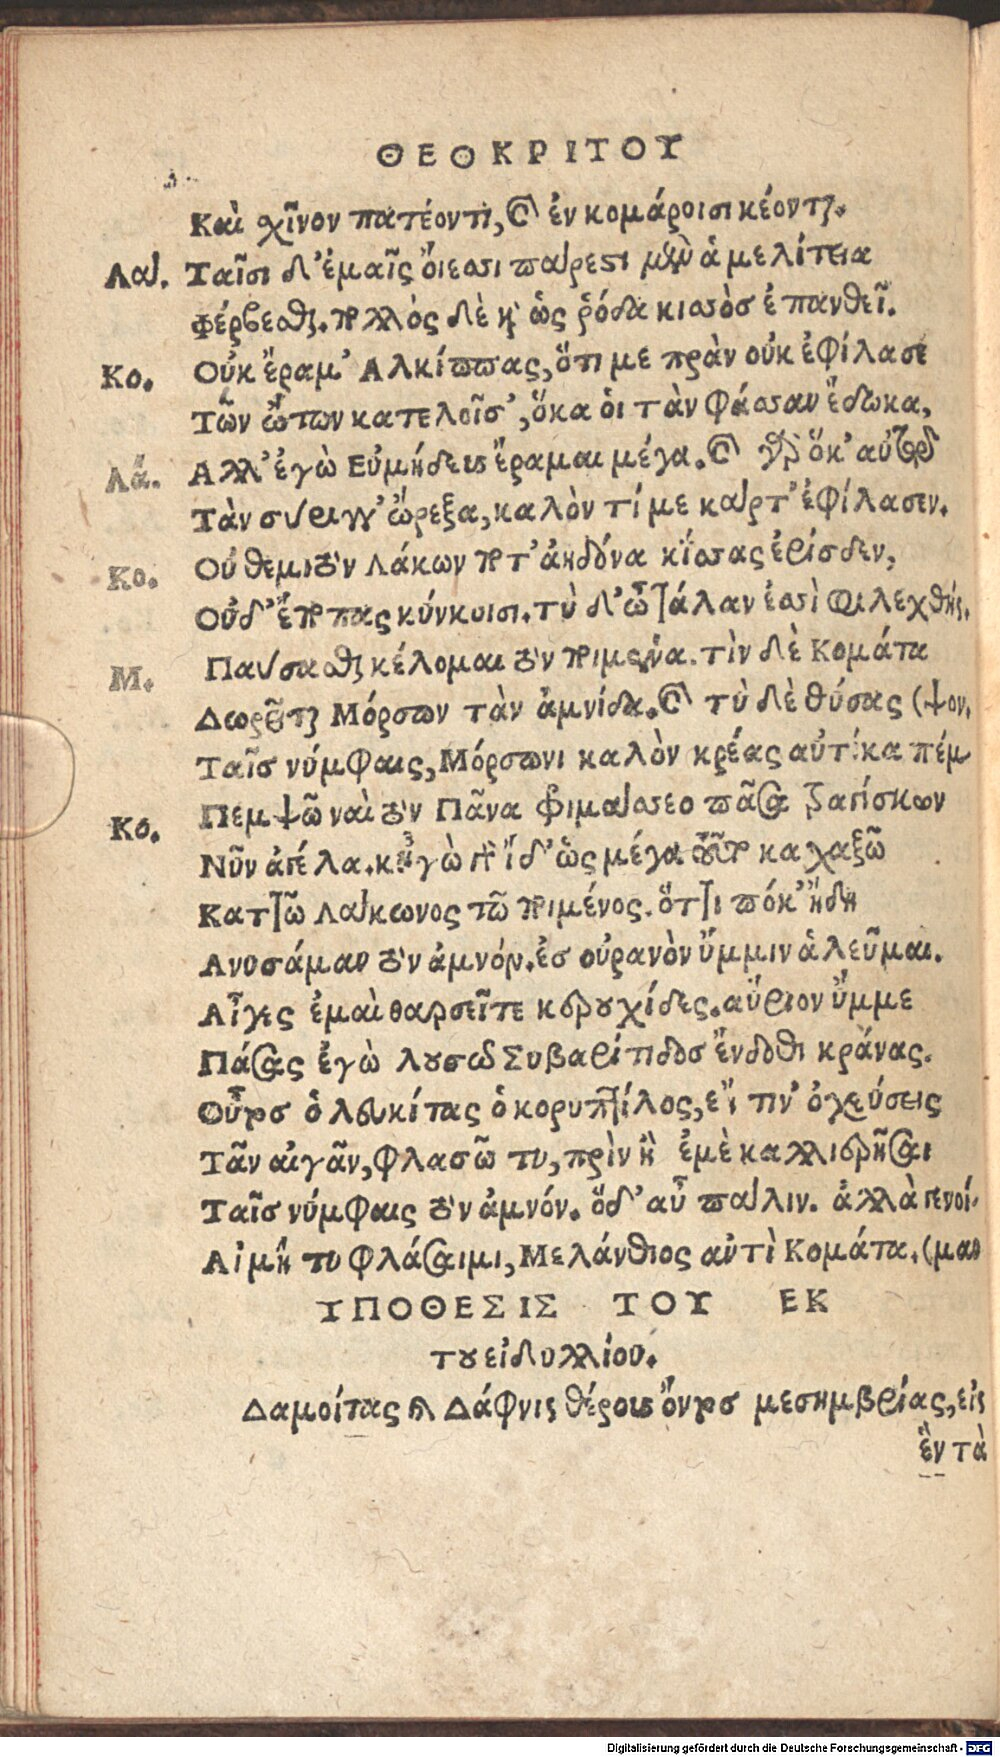 ΘΕΟΚΡΙΤΟΥ
Καὶ χῖνον πατέοντι, καὶ ἐν κομάροισι κέονται.
Λα. Ταῖσι δ' ἐμαῖς ὄιεσσι πάρεστι μὲν ἁ μελίτεια
Φέρβεσθαι. πολλὸς δὲ καὶ ὡς ῥόδα κισσὸς ἐπανθεῖ.
Κο. Οὐκ ἔραμ' Αλκίππας, ὅτι με πρὰν οὐκ ἐφίλασε
Τῶν ὤτων κατελοῖσ', ὅκα οἱ τὰν φάσσαν ἔδωκα,
Λά. Αλλ' ἐγὼ Εὐμήδευς ἔραμαι μέγα. καὶ γὰρ ὅκ' αὐτῷ
Τὰν συριγγ' ὤρεξα, καλὸν τί με κάρτ' ἐφίλασεν.
Κο. Οὐ θεμιτὸν Λάκων ποτ' ἀηδόνα κίσσας ἐρίσδεν,
Οὐδ' ἔποπας κύκνοισι. τὺ δ' ὦ τάλαν ἐσσὶ φιλεχθής.
Μ. Παύσασθαι κέλομαι τὸν ποιμένα. τὶν δὲ Κομάτα
Δωρεῖται Μόρσων τὰν ἀμνίδα. καὶ τὺ δὲ θύσας (ψον.
Ταῖσ νύμφαις, Μόρσωνι καλὸν κρέας αὐτίκα πέμ
Κο. Πεμψῶ ναὶ τὸν Πᾶνα φριμάσσεο πᾶσα τραγίσκων
Νῦν ἀγέλα. κἠγὼ γὰρ ἴδ' ὡς μέγα τοῦτο καχαξῶ
Καττῶ Λάκωνος τῶ ποιμένος. ὅττι πόκ' ἤδη
Ανυσάμαν τὸν ἀμνόν. ἐσ οὐρανὸν ὔμμιν ἁλεῦμαι.
Αἶγες ἐμαὶ θαρσεῖτε κερουχίδες. αὔριον ὔμμε
Πάσας ἐγὼ λουσῶ Συβαρίτιδος ἔνδοθι κράνας.
Οὗτος ὁ λευκίτας ὁ κορυπτίλος, εἴ τιν' ὀχεύσεις
Τᾶν αἰγᾶν, φλασῶ τυ, πρὶν ἢ ἐμὲ καλλιερῆσαι
Ταῖσ νύμφαις τὸν ἀμνόν. ὅδ' αὖ πάλιν. ἀλλὰ γενοί-
Αἰ μή τυ φλάσαιμι, Μελάνθιος αντὶ Κομάτα. (μαν
ΥΠΟΘΕΣΙΣ ΤΟΥ ΕΚ
του εἰδυλλίου.
Δαμοίτας καὶ Δάφνις θέρους ὄντος μεσημβρίας, εἰς
ἓν τὰ
Digitalisierung gefördert durch die Deutsche Forschungsgemeinschaft - DFG